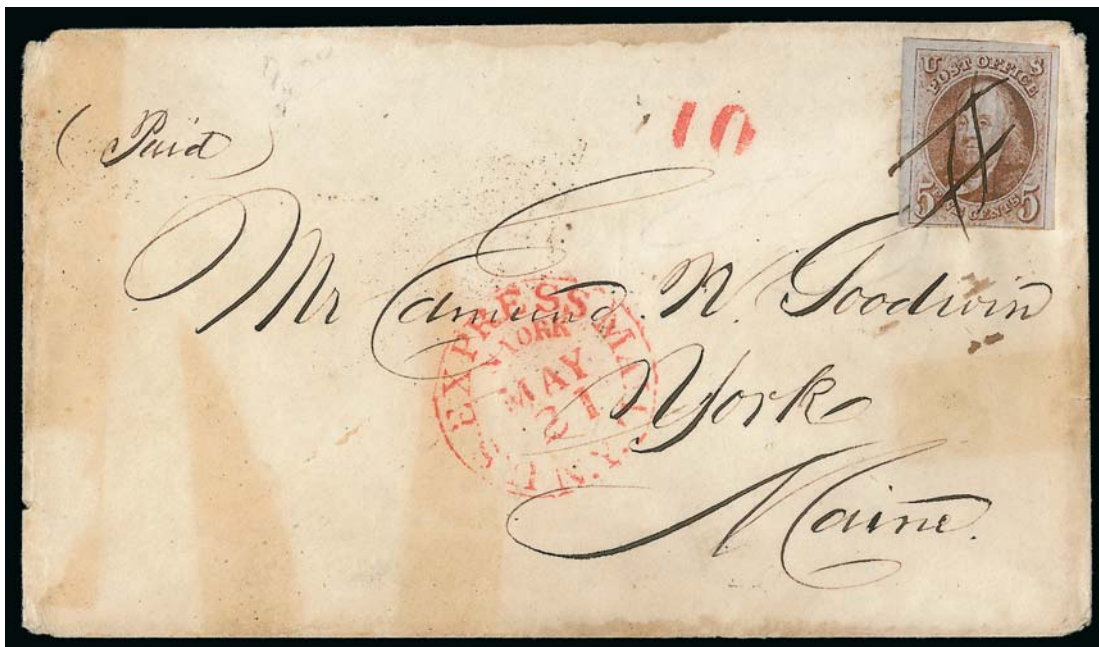 (Paid)
10
U S
POST OFFICE
5 CENTS 5
Mr Edmund N. Goodwin
York
Maine.
U.S. EXPRESS MAIL N.Y.
N.YORK
MAY
31